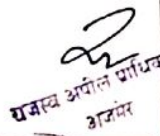 राजस्व अपील प्राधिक
अजमेर